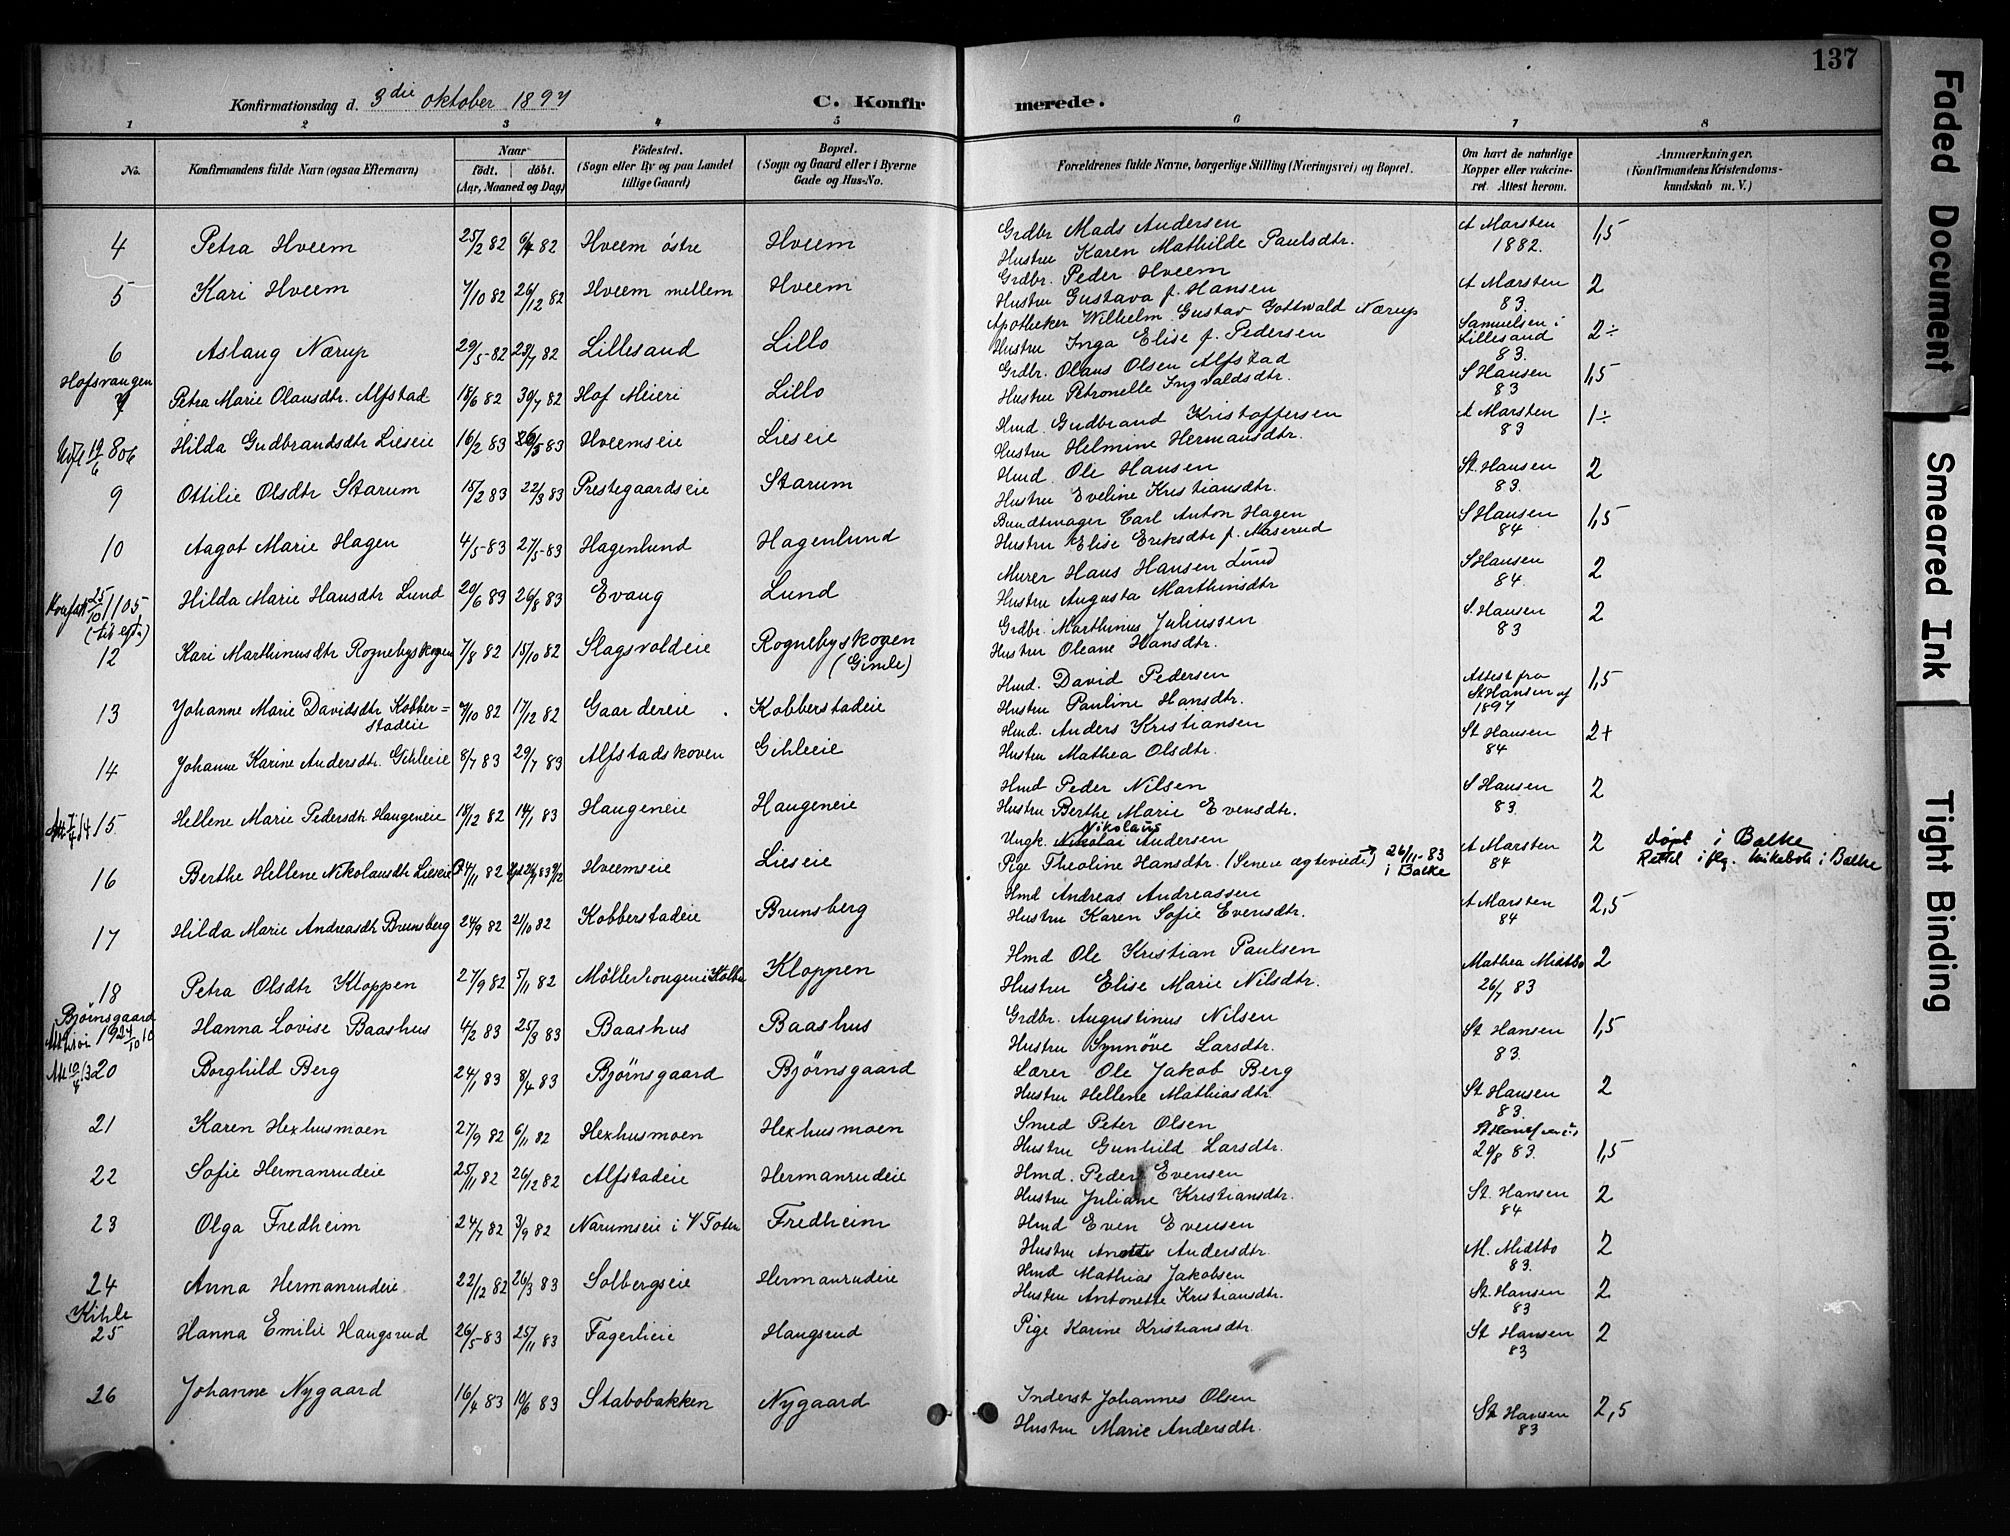 137
Konfirmationsdag d. 3die oktober 1897
C. Konfirmerede.
1 2 3 4 5 6 7 8
No.
Konfirmandens fulde Navn (ogsaa Efternavn)
Naar
født. døbt.
(Aar, Maaned og Dag)
Fødested.
(Sogn eller By og paa Landet
tillige Gaard)
Bopæl.
(Sogn og Gaard eller i Byerne
Gade og Hus-No.
Forældrenes fulde Navne, borgerlige Stilling (Næringsvei) og Bopæl.
Om havt de naturlige
Kopper eller vakcine-
ret. Attest herom.
Anmærkninger.
(Konfirmandens Kristendoms-
kundskab m. V.)
4 Petra Hveem 25/2 82 9/4 82 Hveem östre Hveem Grdbr Mads Andersen A Marsten 1,5
Hustru Karen Mathilde Paulsdtr. 1882.
5 Kari Hveem 7/10 82 26/12 82 Hveem mellem Hveem Grdbr. Peder Hveem A Marsten 2
Hustru Gustava f. Hansen 83.
6 Aslaug Nærup 29/5-82 28/7 82 Lillesand Lillo Apotheker Wilhelm Gustav Gottwald Nærup Samuelsen i 2÷
Hustru Inga Elise f. Pedersen Lillesand
83.
Hofsvangen
7 Petra Marie Olausdtr. Alfstad 18/6 82 30/7 82 Hof Meieri Lillo Grdbr. Olaus Olsen Alfstad S Hansen 1,5
Hustru Petronelle Ingvaldsdtr. 83
19/6 06 8 Hilda Gudbrandsdtr Lieseie 16/2 83 /5 83 Hveemseie Lieseie Hmd. Gudbrand Kristoffersen A Marsten 1÷
Hustru Helmine Hermansdtr. 83
9 Ottilie Olsdtr Starum 15/2 83 22/3 83 Prestegaardseie Starum Hmd. Ole Hansen St. Hansen 2
Hustru Eveline Kristiansdtr. 83.
10 Aagot Marie Hagen 4/5-83 27/5-83 Hagenlund Hagenlund Bundtmager Carl Anton Hagen S Hansen 1,5
Hustru Elise Eriksdtr f. Aaserud 84
25/10 05 11 Hilda Marie Hansdtr Lund 20/6 83 26/8 83 Evang Lund Murer Hans Hansen Lund S Hansen 2
Hustru Augusta Marthinsdtr 84.
12 Kari Marthinusdtr Rognebyskogen 7/8 82 15/10 82 Slagsvoldeie Rognebyskogen Grdbr. Marthinus Juliussen S. Hansen 2
(Gimle) Hustru Oleane Hansdtr. 83
13 Johanne Marie Davidsdtr Kobber= 9/10 82 17/12 82 Gaardereie Kobberstadeie Hmd. David Pedersen Attest fra 1,5
stadeie Hustru Pauline Hansdtr. St Hansen af
1897
14 Johanne Karine Andersdtr. Gihleeie 8/7 83 29/7 83 Alfstadskoven Gihleeie Hmd. Anders Kristiansen St Hansen 2+
Hustru Mathea Olsdtr. 84
15 Hellene Marie Pedersdtr Haugeneie 18/12 82 14/1 83 Haugeneie Haugeneie Hmd Peder Nilsen S Hansen 2
Hustru Berthe Marie Evensdtr. 83.
Nikolaus
16 Berthe Hellene Nikolausdtr Lieseie 24/11 82 Hveemseie Lieseie Ungk. Nikolai Andersen A Marsten 2 Døpt i Balke
Pige Theoline Hansdtr. (Senere ægteviede) → 26/11-83 84
i Balke
17 Hilda Marie Andreasdtr Brunsberg 24/9 82 21/10 82 Kobberstadeie Brunsberg Hmd Andreas Andreassen A Marsten 2,5
Hustru Karen Sofie Evensdtr. 84
18 Petra Olsdtr Kloppen 27/9 82 5/11 82 Möllerhaugen i Kolbu Kloppen Hmd Ole Kristian Paulsen Mathea Midtbo 2
Hustru Elise Marie Nilsdtr. 26/7 83
Bjørnsgaard
19 24/10 10 Hanna Lovise Baashus 4/2 83 25/3 83 Baashus Baashus Grdbr. Augustinus Nilsen St Hansen 1,5
Hustru Synnøve Larsdtr. 83.
20 Borghild Berg 24/1 83 8/4 83 Bjørnsgaard Bjørnsgaard Lærer Ole Jakob Berg St Hansen 2
Hustru Hellene Mathiasdtr. 83.
21 Karen Hexhusmoen 27/9 82 6/11 82 Hexhusmoen Hexhusmoen Smed Peter Olsen
Hustru Gunhild Larsdtr. 29/8 83. 1,5
22 Sofie Hermanrudeie 25/11 82 26/12 82 Alfstadeie Hermanrudeie Hmd. Peder Evensen St. Hansen 2
Hustru Juliane Kristiansdtr. 84
23 Olga Fredheim 24/7 82 3/9 82 Narumseie i V Toten Fredheim Hmd Even Evensen M. Midtbo 2
Hustru Andersdtr. 83.
24 Anna Hermanrudeie. 22/12 82 26/3 83 Solbergseie Hermanrudeie Hmd Mathias Jakobsen St. Hansen 2
Hustru Antonette Kristiansdtr. 83
Kihle
25 Hanna Emilie Haugsrud 26/5-83 25/11 83 Fagerlieie Haugsrud Pige Karine Kristiansdtr. St Hansen 2
83
26 Johanne Nygaard 16/4 83 10/6 83 Stabobakken Nygaard Inderst Johannes Olsen St Hansen 2,5
Hustru Marie Andersdtr. 83
Faded Document
Smeared Ink
Tight Binding